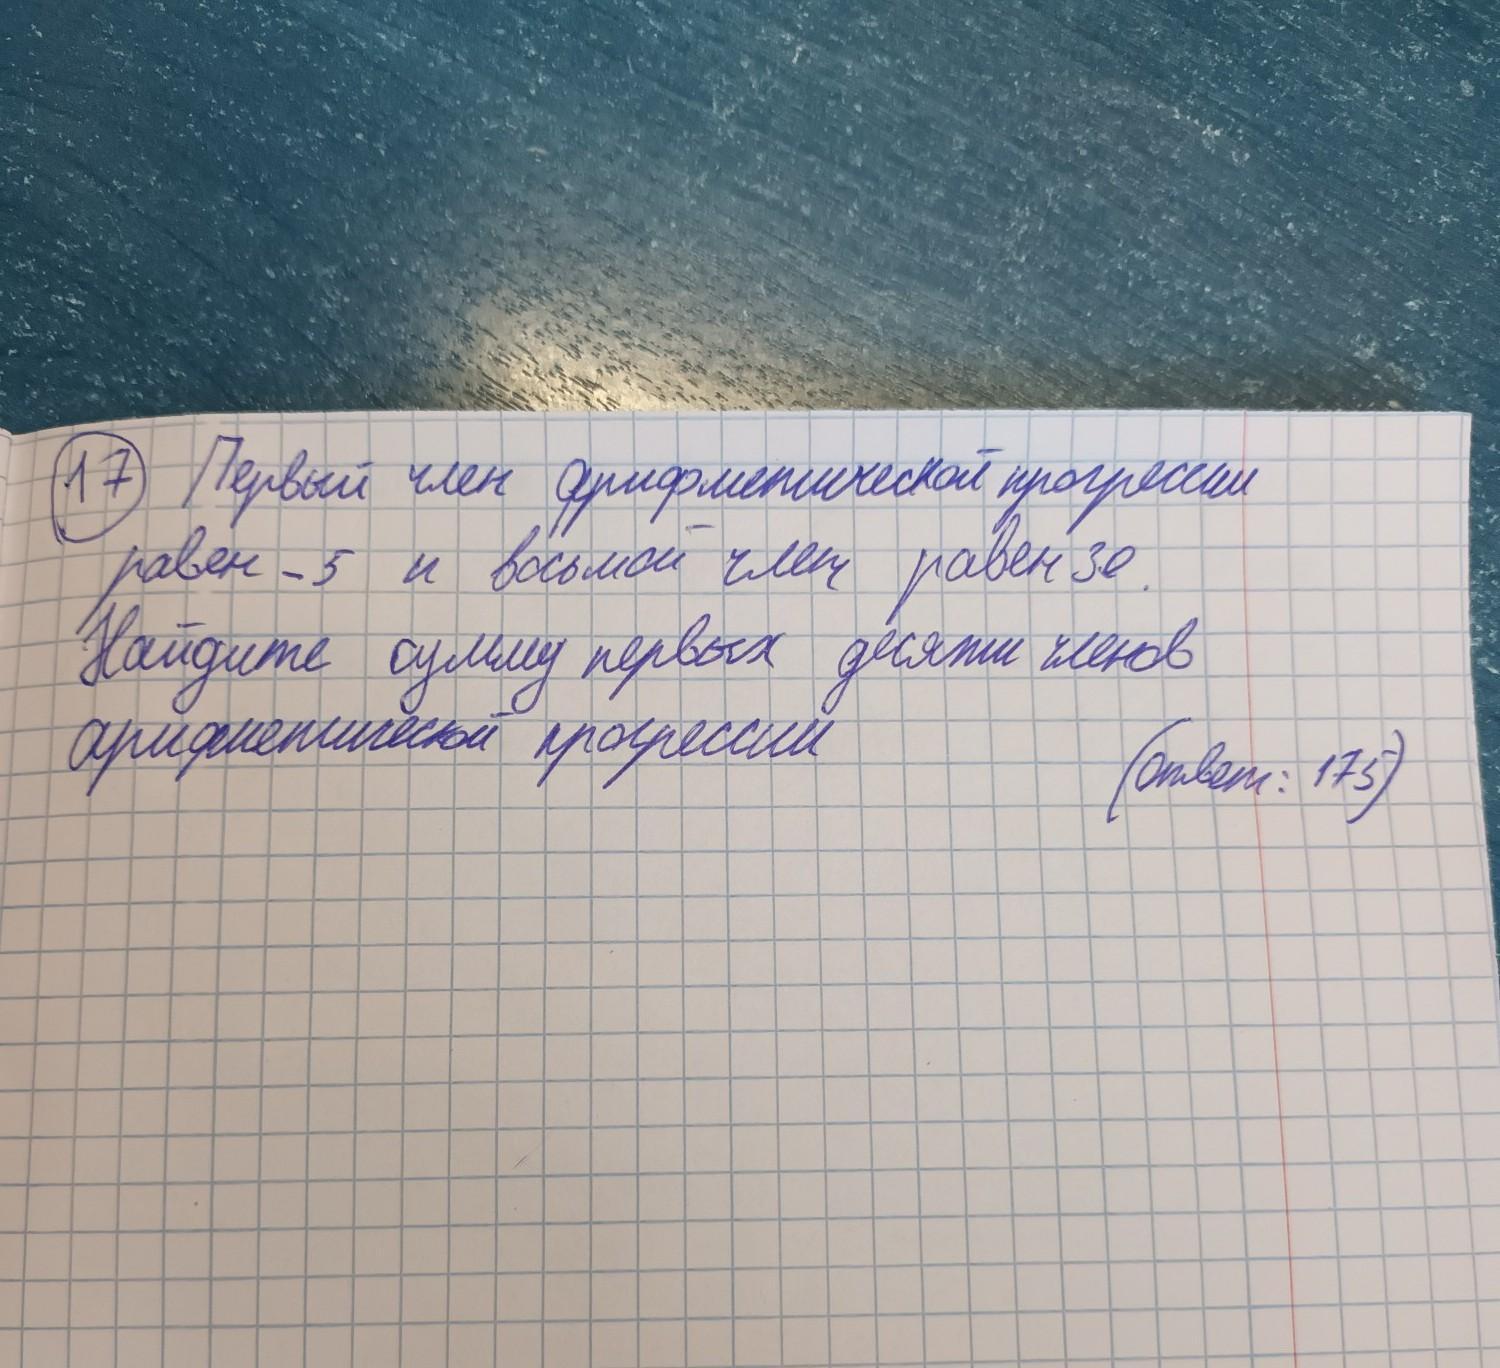 17 Первый член арифметической прогрессии
равен -5 и восьмой член равен 30.
Найдите сумму первых десяти членов
арифметической прогрессии
(ответ: 175)